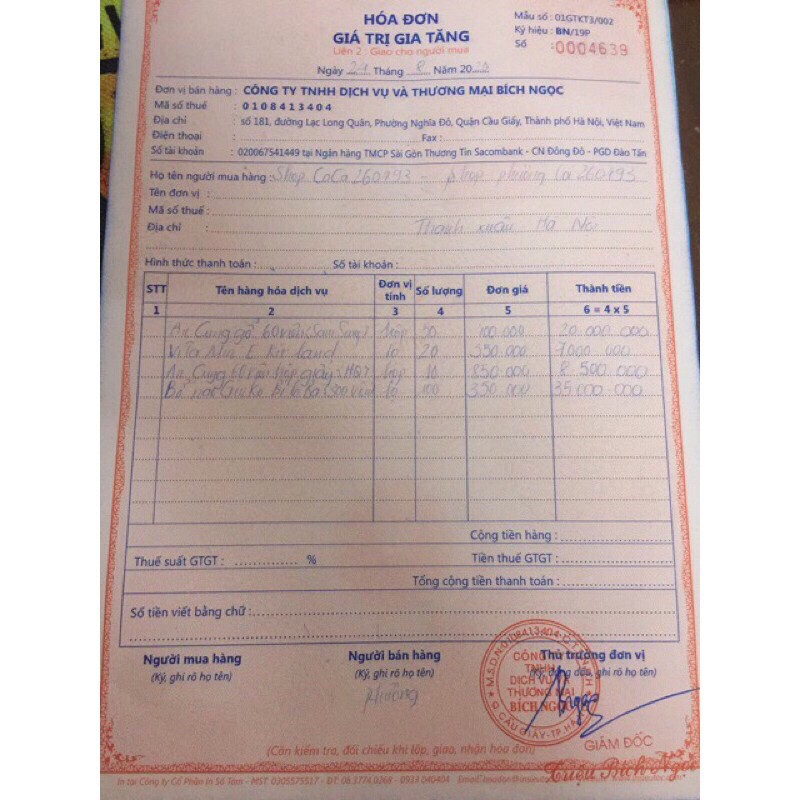 HÓA ĐƠN
GIÁ TRỊ GIA TĂNG
Liên 2: Giao cho người mua
Mẫu số : 01GTKT3/002
Ký hiệu : BN/19P
Số : 0004639
Ngày Tháng 8 Năm 2020
Đơn vị bán hàng : CÔNG TY TNHH DỊCH VỤ VÀ THƯƠNG MẠI BÍCH NGỌC
Mã số thuế : 0108413404
Địa chỉ : số 181, đường Lạc Long Quân, Phường Nghĩa Đô, Quận Cầu Giấy, Thành phố Hà Nội, Việt Nam
Điện thoại : Fax :
Số tài khoản : 020067541449 tại Ngân hàng TMCP Sài Gòn Thương Tín Sacombank - CN Đông Đô - PGD Đào Tấn
Họ tên người mua hàng : Shop CaCa 260793 - shop phường Ca 260793
Tên đơn vị :
Mã số thuế :
Địa chỉ : Thanh xuân Hà Nội
Hình thức thanh toán : Số tài khoản :
STT Tên hàng hóa dịch vụ Đơn vị tính Số lượng Đơn giá Thành tiền
1 2 3 4 5 6 = 4 x 5
An Cung gỗ 60 viên (Sam Sung) hộp 20 000 000
Vitamin E lọ 20 350 000 7000 000
An Cung hộp 10 850 000 8 500 000
Bổ lọ 100 350 000 35 000 000
Cộng tiền hàng :
Thuế suất GTGT : % Tiền thuế GTGT :
Tổng cộng tiền thanh toán :
Số tiền viết bằng chữ :
Người mua hàng Người bán hàng Thủ trưởng đơn vị
(Ký, ghi rõ họ tên) (Ký, ghi rõ họ tên) (Ký, đóng dấu, ghi rõ họ tên)
M.S.D.N:0108413404-C.T.T.N.H.H
CÔNG TY
TNHH
DỊCH VỤ VÀ
THƯƠNG MẠI
BÍCH NGỌC
Q. CẦU GIẤY-TP.HÀ NỘI
Phường
GIÁM ĐỐC
Triệu Bích Ngọc
(Cần kiểm tra, đối chiếu khi lập, giao, nhận hóa đơn)
In tại Công ty Cổ Phần In Số Tám - MST: 0305575517 - ĐT: 08.3774.0268 - 0913 040404